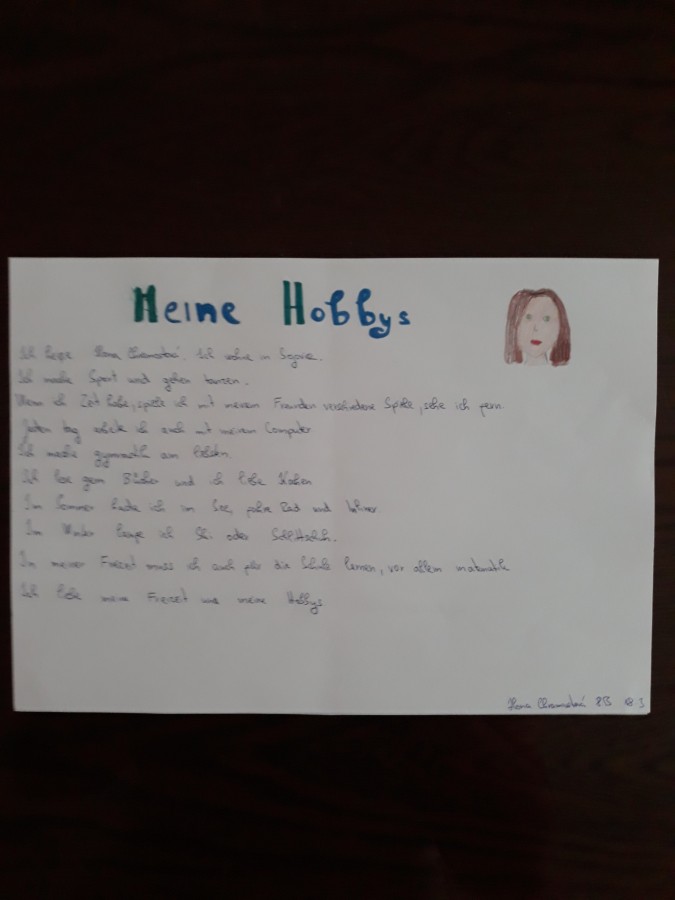 Meine Hobbys
Ich heiße Ich wohne in
Ich mache Sport und gehen tanzen.
Wenn ich Zeit habe, spiele ich mit meinen Freunden verschiedene Spiele, sehe ich fern.
Jeden tag arbeite ich auch mit meinem Computer
Ich mache gymnastik am liebsten.
Ich lese gern Bücher und ich liebe Kochen
Im Sommer bade ich im See, fahre Rad und
Im Winter laufe ich Ski oder
In meiner Freizeit muss ich auch für die Schule lernen, vor allem matematik
Ich liebe meine Freizeit und meine Hobbys